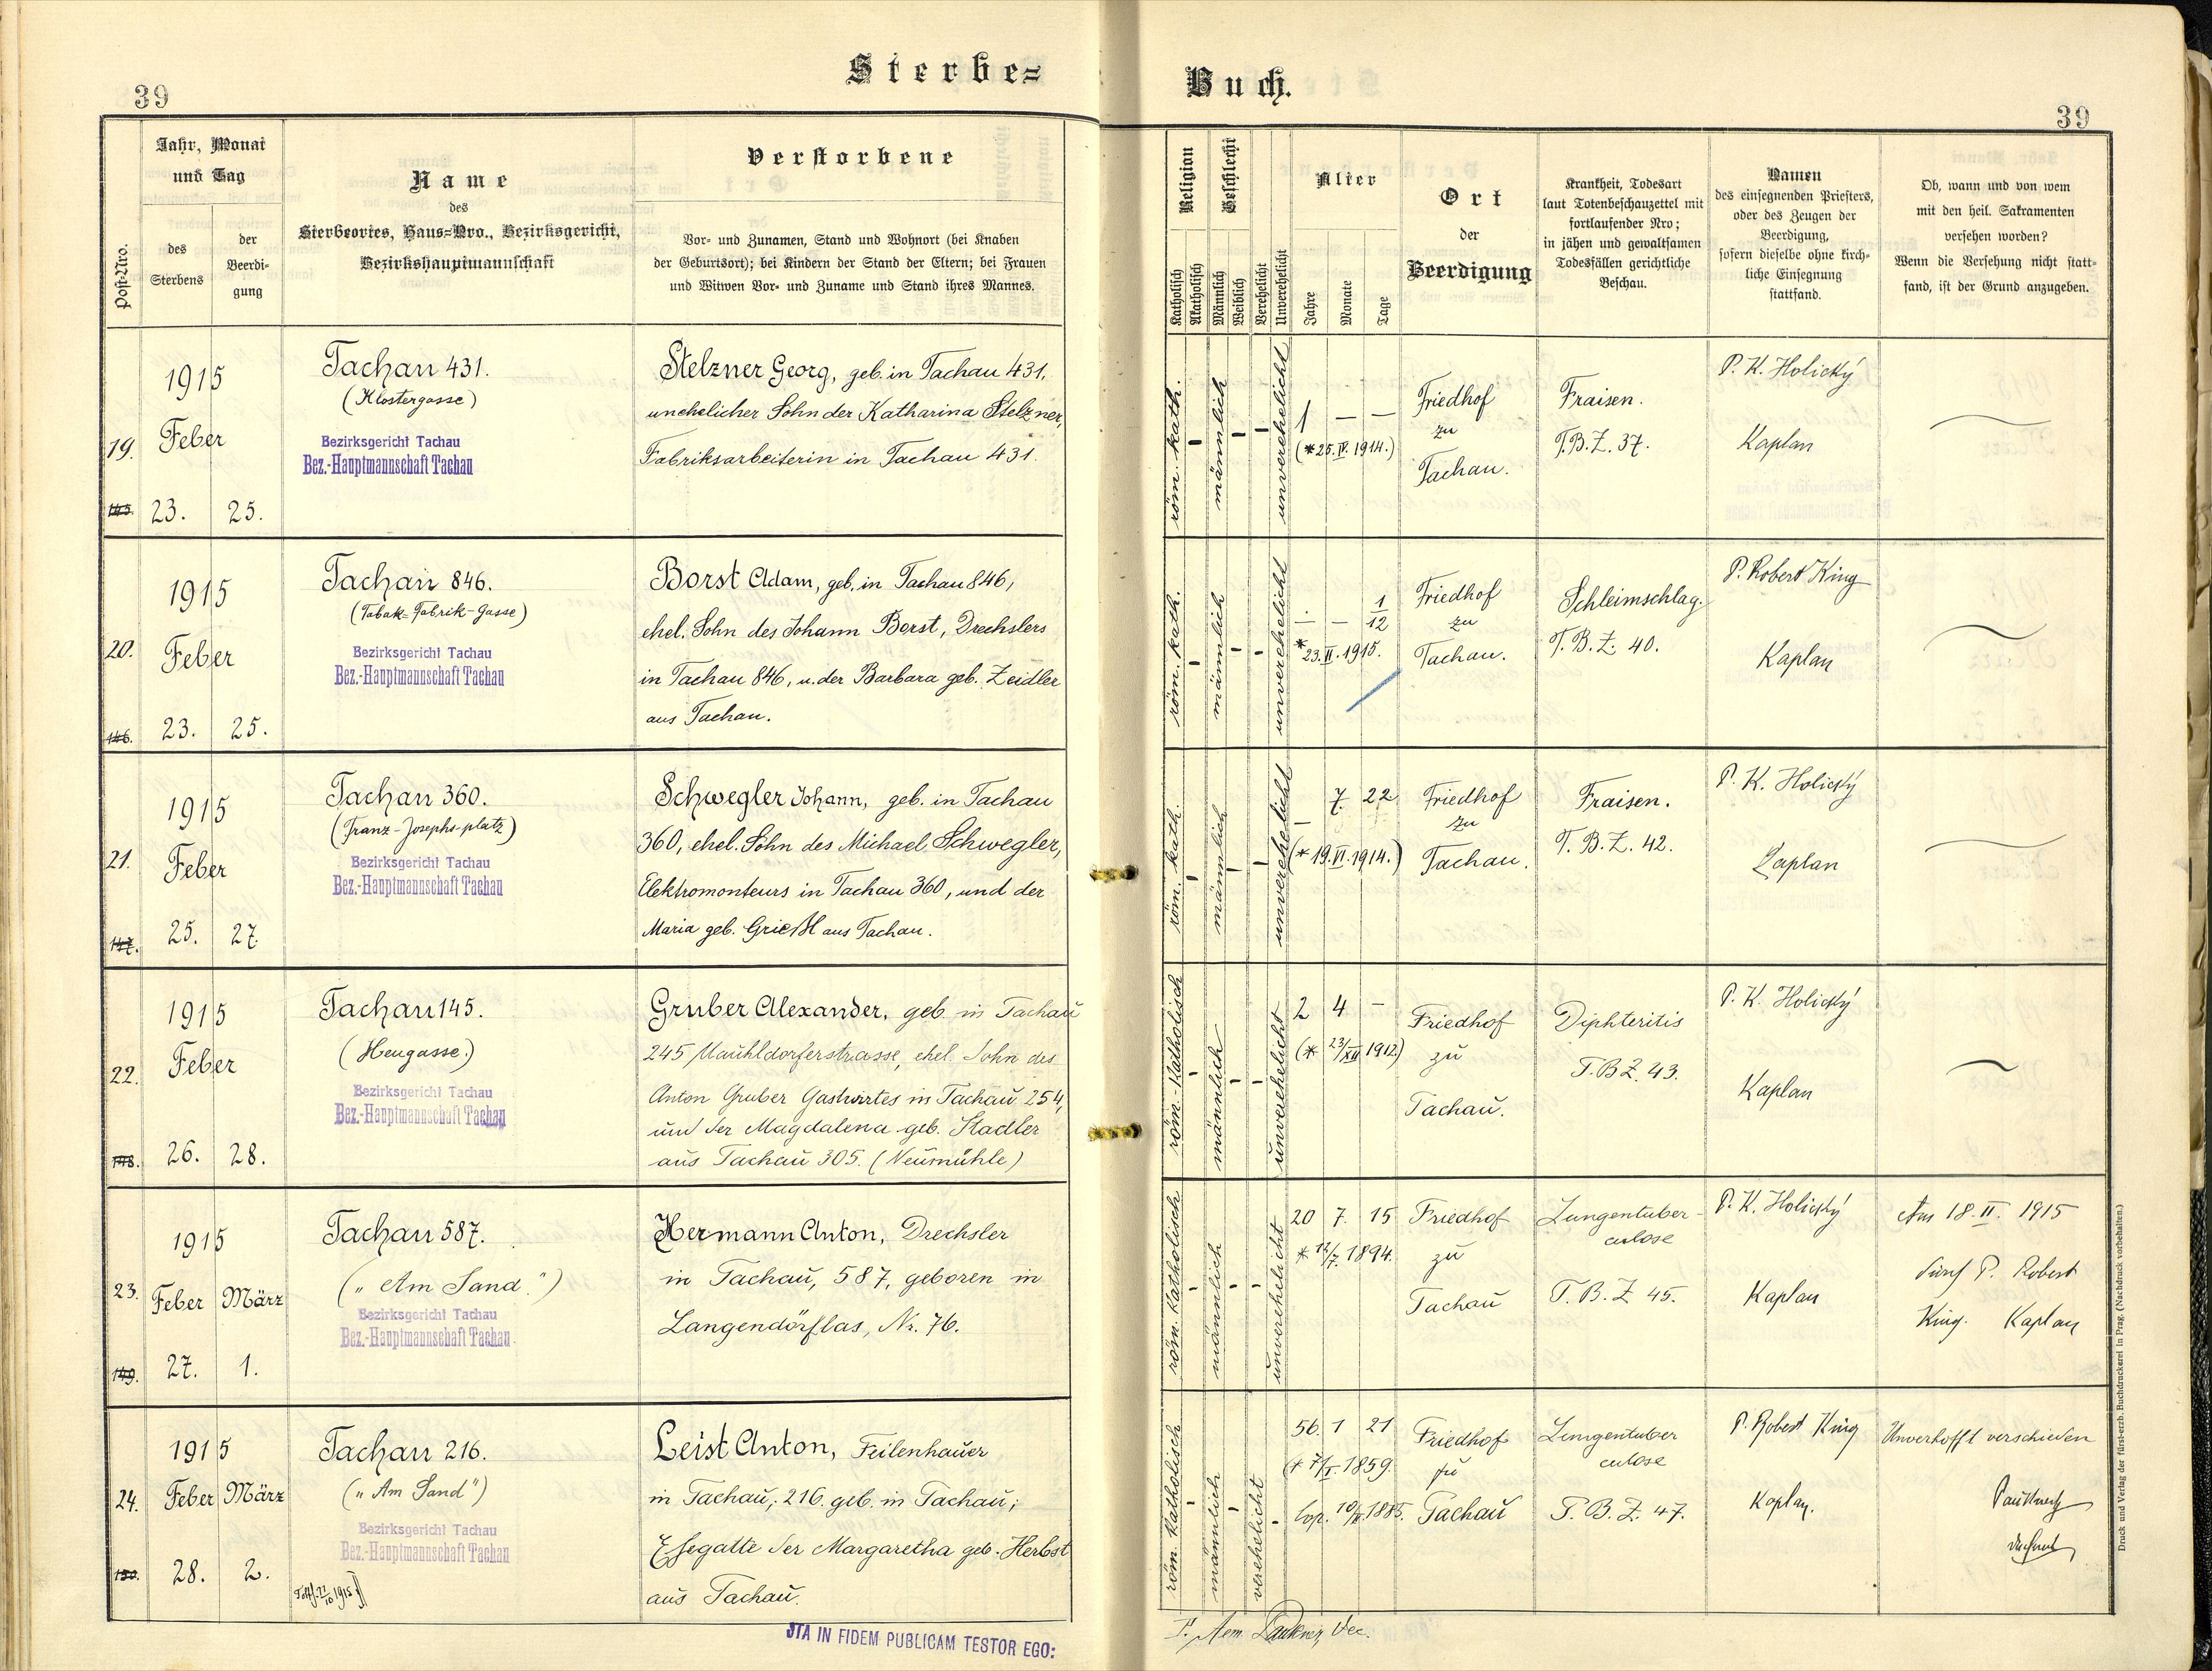 Sterbe=
Buch.
39
39
Post-Nro.
Jahr, Monat
und Tag
des
Sterbens
der
Beerdi-
gung
Name
des
Sterbeortes, Haus=Nro., Bezirksgericht,
Bezirkshauptmannschaft
Verstorbene
Vor- und Zunamen, Stand und Wohnort (bei Knaben
der Geburtsort); bei Kindern der Stand der Eltern; bei Frauen
und Witwen Vor- und Zuname und Stand ihres Mannes.
Religion
Katholisch
Akatholisch
Geschlecht
Männlich
Weiblich
Verehelicht
Unverehelicht
Alter
Jahre
Monate
Tage
Ort
der
Beerdigung
Krankheit, Todesart
laut Totenbeschauzettel mit
fortlaufender Nro;
in jähen und gewaltsamen
Todesfällen gerichtliche
Beschau.
Namen
des einsegnenden Priesters,
oder des Zeugen der
Beerdigung,
sofern dieselbe ohne kirch-
liche Einsegnung
stattfand.
Ob, wann und von wem
mit den heil. Sakramenten
versehen worden?
Wenn die Versehung nicht statt-
fand, ist der Grund anzugeben.
19.
145.
1915
Feber
23. 25.
Tachau 431.
(Klostergasse)
Bezirksgericht Tachau
Bez.-Hauptmannschaft Tachau
Stelzner Georg, geb. in Tachau 431,
unehelicher Sohn der Katharina Stelzner,
Fabriksarbeiterin in Tachau 431.
röm. kath.
-
männlich
-
-
unverehelicht
1 — —
(*25. IV. 1914.)
Friedhof
zu
Tachau.
Fraisen.
T.B.Z. 37.
P. K. Holický
Kaplan
20.
146.
1915
Feber
23. 25.
Tachau 846.
(Tabak-Fabrik-Gasse)
Bezirksgericht Tachau
Bez.-Hauptmannschaft Tachau
Borst Adam, geb. in Tachau 846,
ehel. Sohn des Johann Borst, Drechslers
in Tachau 846, u. der Barbara geb. Zeidler
aus Tachau.
röm. kath.
-
männlich
-
-
unverehelicht
— — 1/12
*23. II. 1915.
Friedhof
zu
Tachau.
Schleimschlag.
T.B.Z. 40.
P. Robert King
Kaplan
21.
147.
1915
Feber
25. 27.
Tachau 360.
(Franz-Josephs-platz)
Bezirksgericht Tachau
Bez.-Hauptmannschaft Tachau
Schwegler Johann, geb. in Tachau
360, ehel. Sohn des Michael Schwegler,
Elektromonteurs in Tachau 360, und der
Maria geb. Grießl aus Tachau.
röm. kath.
-
männlich
-
-
unverehelicht
— 7. 22
(*19. VI. 1914.)
Friedhof
zu
Tachau.
Fraisen.
T.B.Z. 42.
P. K. Holický
Kaplan
22.
148.
1915
Feber
26. 28.
Tachau 145.
(Heugasse.)
Bezirksgericht Tachau
Bez.-Hauptmannschaft Tachau
Gruber Alexander, geb. in Tachau
245 Mauhldorferstrasse, ehel. Sohn des
Anton Gruber Gastwirtes in Tachau 254,
und der Magdalena geb. Stadler
aus Tachau 305. (Neumühle)
röm.-katholisch
-
männlich
-
-
unverehelicht
2 4 -
(* 23/XII 1912)
Friedhof
zu
Tachau.
Diphteritis
T.B.Z. 43.
P. K. Holický
Kaplan
23.
149.
1915
Feber März
27. 1.
Tachau 587.
("Am Sand.")
Bezirksgericht Tachau
Bez.-Hauptmannschaft Tachau
Hermann Anton, Drechsler
in Tachau, 587, geboren in
Langendörflas, Nr. 76.
röm. katholisch
-
männlich
-
-
unverehelicht
20 7. 15
* 12/7. 1894.
Friedhof
zu
Tachau
Lungentuber-
culose
T.B.Z 45.
P. K. Holický
Kaplan
Am 18. II. 1915
durch P. Robert
King. Kaplan
24.
150.
1915
Feber März
28. 2.
Tachau 216.
("Am Sand")
Bezirksgericht Tachau
Bez.-Hauptmannschaft Tachau
Leist Anton, Feilenhauer
in Tachau, 216. geb. in Tachau;
Ehegatte der Margaretha geb. Herbst
aus Tachau.
röm. katholisch
-
männlich
-
verehelicht
-
56. 1 21
(* 7/I. 1859.
Cop. 10/II. 1885.
Friedhof
zu
Tachau
Lungentuber
culose
T.B.Z. 47.
P. Robert King
Kaplan.
Unverhofft verschieden
JTA IN FIDEM PUBLICAM TESTOR EGO:
Druck und Verlag der fürst-erzb. Buchdruckerei in Prag. (Nachdruck vorbehalten.)